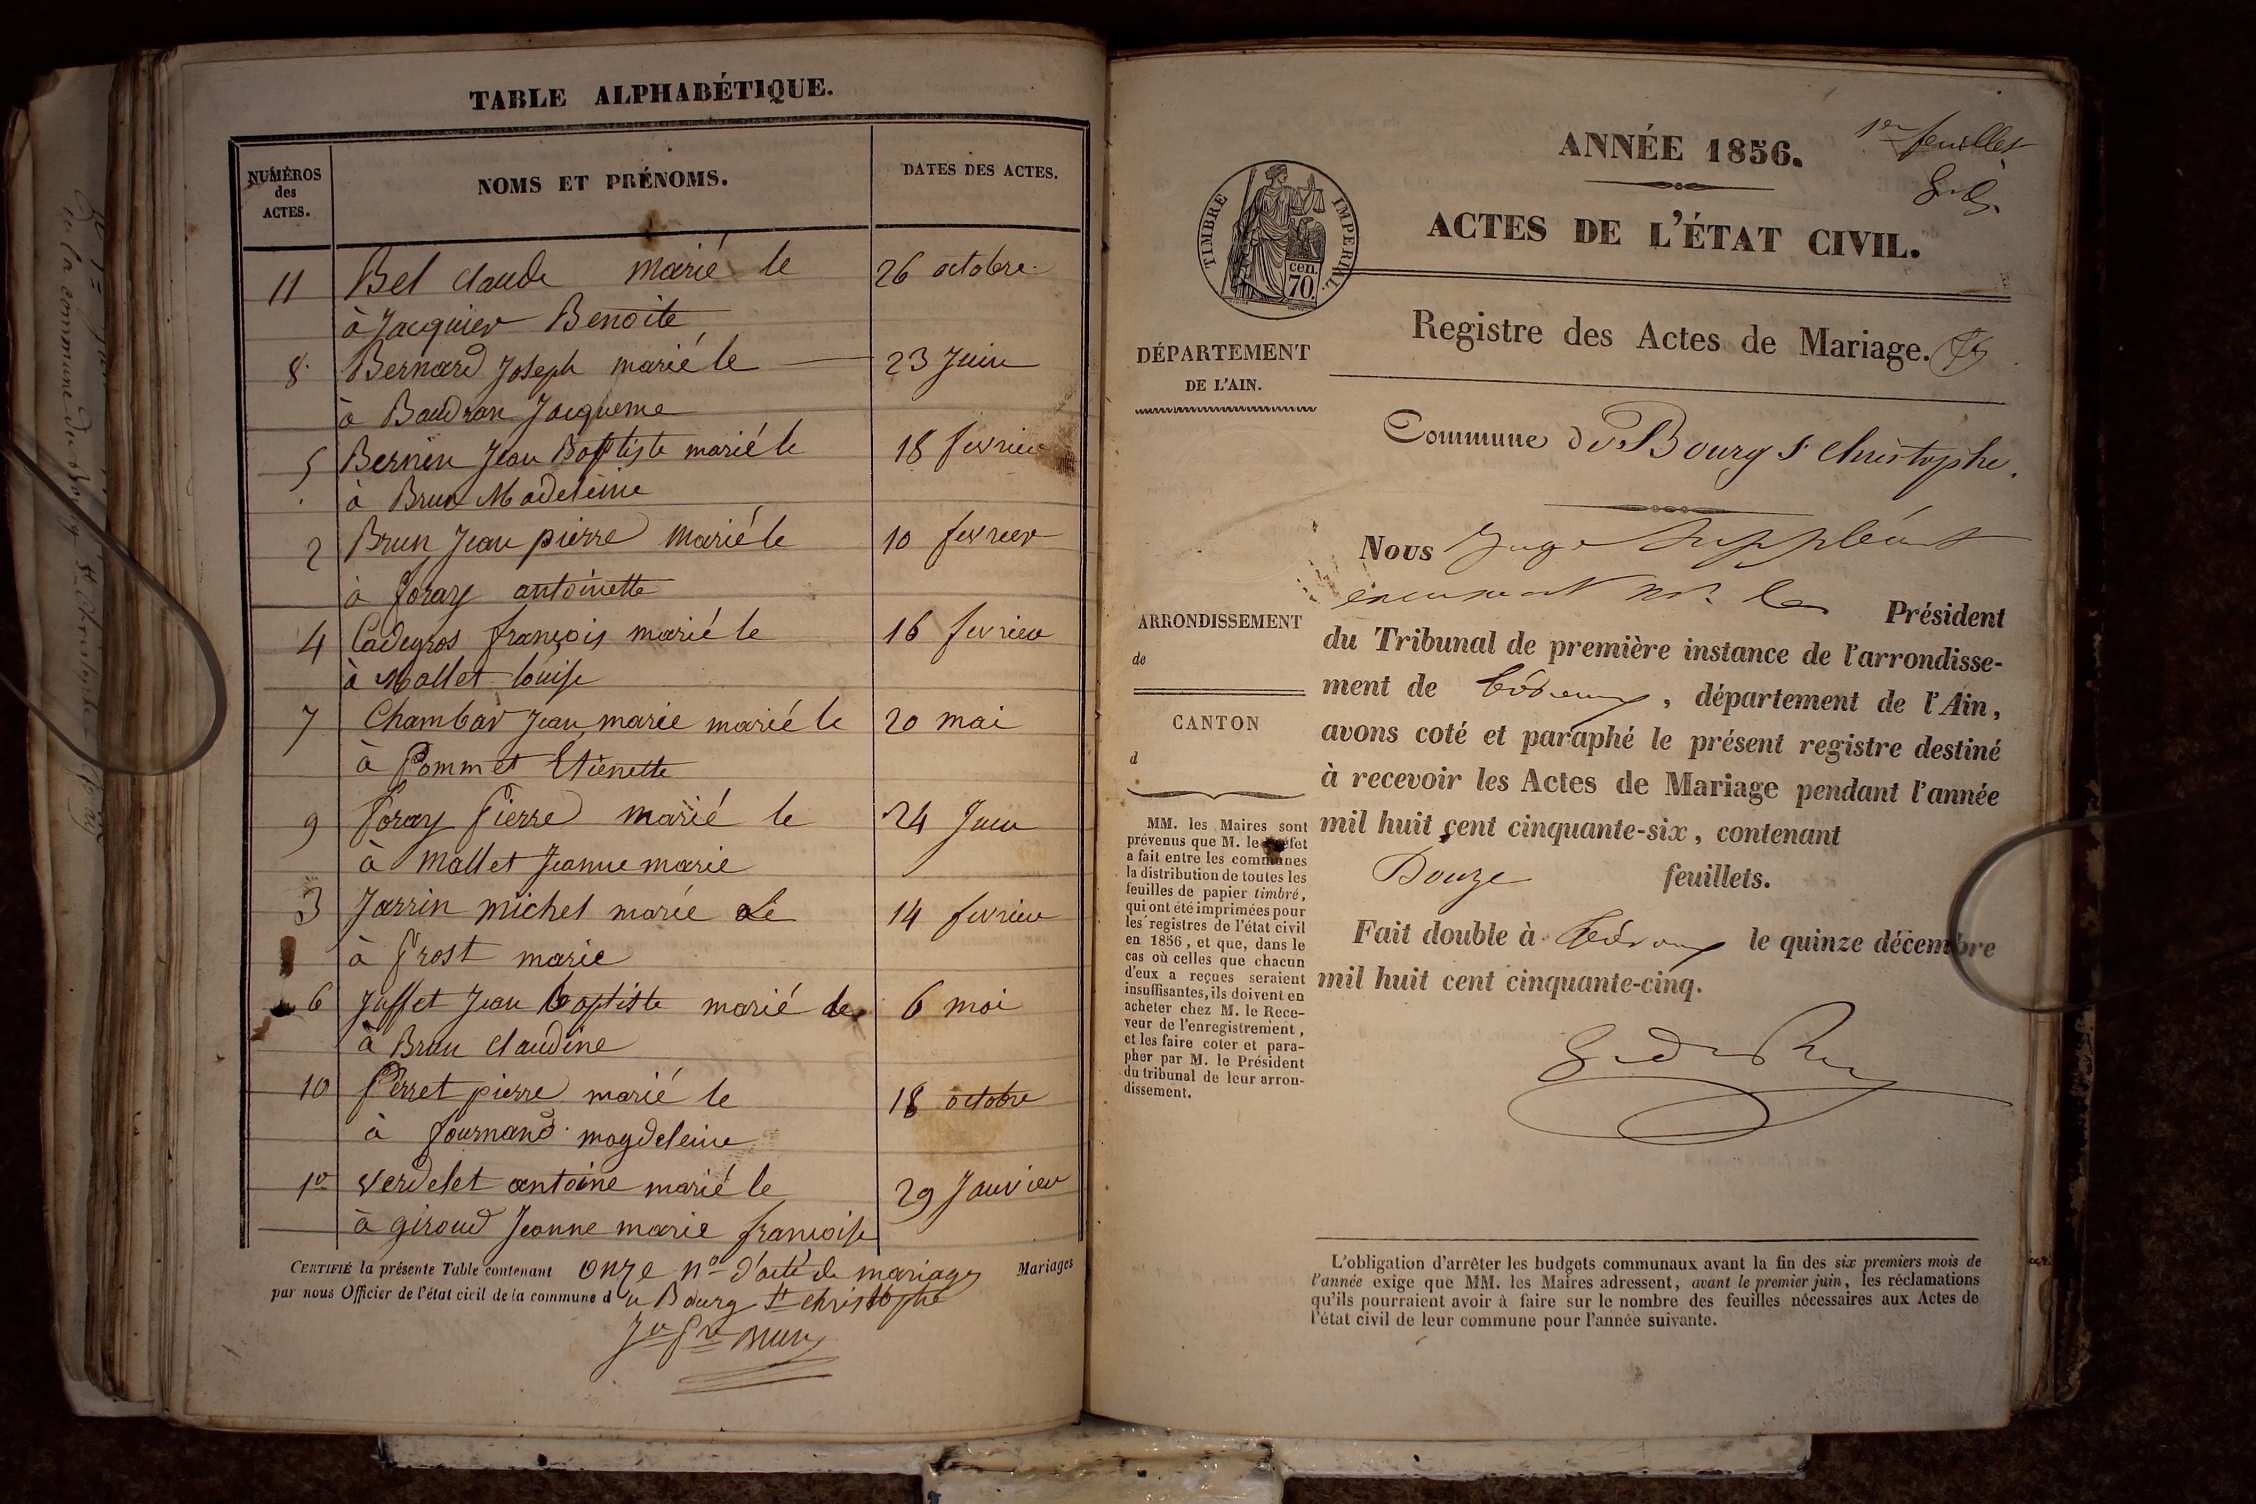 TABLE ALPHABÉTIQUE.
NUMÉROS
des
ACTES.
NOMS ET PRÉNOMS.
DATES DES ACTES.
11 Bel claude marié le 26 octobre
à Jacquier Benoite
8 Bernard Joseph marié le 23 Juin
à Baudran Jacqueme
5 Bernin Jean Baptiste marié le 18 fevrier
à Brun Madeleine
2 Brun Jean pierre marié le 10 fevrier
à foray antoinette
4 Cadegros françois marié le 16 fevrier
à Mallet louise
7 Chambar Jean marie marié le 20 mai
à Pommet Etienette
9 foray Pierre marié le 24 Juin
à mallet Jeanne marie
3 Jarrin michel marié le 14 fevrier
à Prost marie
6 Juffet Jean baptiste marié le 6 mai
à Brun claudine
10 Perret pierre marié le 18 octobre
à fournand magdeleine
1er verdelet antoine marié le 29 Janvier
à giroud Jeanne marie françoise
CERTIFIÉ la présente Table contenant onze no d'acte de mariages Mariages
par nous Officier de l'état civil de la commune du Bourg St christophe
Brun
ANNÉE 1856.
1er feuillet
TIMBRE IMPERIAL.
cen.
70.
ACTES DE L'ÉTAT CIVIL.
Registre des Actes de Mariage.
DÉPARTEMENT
DE L'AIN.
Commune de Bourg St christophe.
Nous Juge Suppléant
Mr. le Président
du Tribunal de première instance de l'arrondisse-
ment de Trévoux, département de l'Ain,
avons coté et paraphé le présent registre destiné
à recevoir les Actes de Mariage pendant l'année
mil huit cent cinquante-six, contenant
Douze feuillets.
Fait double à Trévoux le quinze décembre
mil huit cent cinquante-cinq.
ARRONDISSEMENT
de
CANTON
d
MM. les Maires sont
prévenus que M. le Préfet
a fait entre les communes
la distribution de toutes les
feuilles de papier timbré,
qui ont été imprimées pour
les registres de l'état civil
en 1856, et que, dans le
cas où celles que chacun
d'eux a reçues seraient
insuffisantes, ils doivent en
acheter chez M. le Rece-
veur de l'enregistrement,
et les faire coter et para-
pher par M. le Président
du tribunal de leur arron-
dissement.
L'obligation d'arrêter les budgets communaux avant la fin des six premiers mois de
l'année exige que MM. les Maires adressent, avant le premier juin, les réclamations
qu'ils pourraient avoir à faire sur le nombre des feuilles nécessaires aux Actes de
l'état civil de leur commune pour l'année suivante.